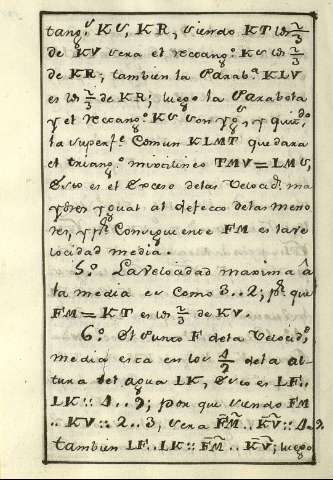 tang.º KS, KR, siendo KT los 2/3
de KV sera el rectang.º KS los 2/3
de KR; tambien la Parab.ª KLV
es los 2/3 de KR; luego la Parabola
y el rectang.º KS son yg.s, y quit.do
la superf.e Comun KLMT quedara
el triang.º mixtilineo TMV = LMS,
Esto es el Exceso delas Velocid.s ma
yores ygual al defecto delas meno
res, y p.r Consiguiente FM es la ve
locidad media.
5.º La velocidad maxima â
la media es como 3..2; p.r que
FM = KT es los 2/3 de KV.
6.º El Punto F dela Velocid.d
media esta en los 4/9 dela al-
tura del agua LK, Esto es LF..
LK :: 4..9; por que siendo FM
.. KV :: 2..3, sera FM².. KV² :: 4..9
tambien LF..LK :: FM².. KV²; luego